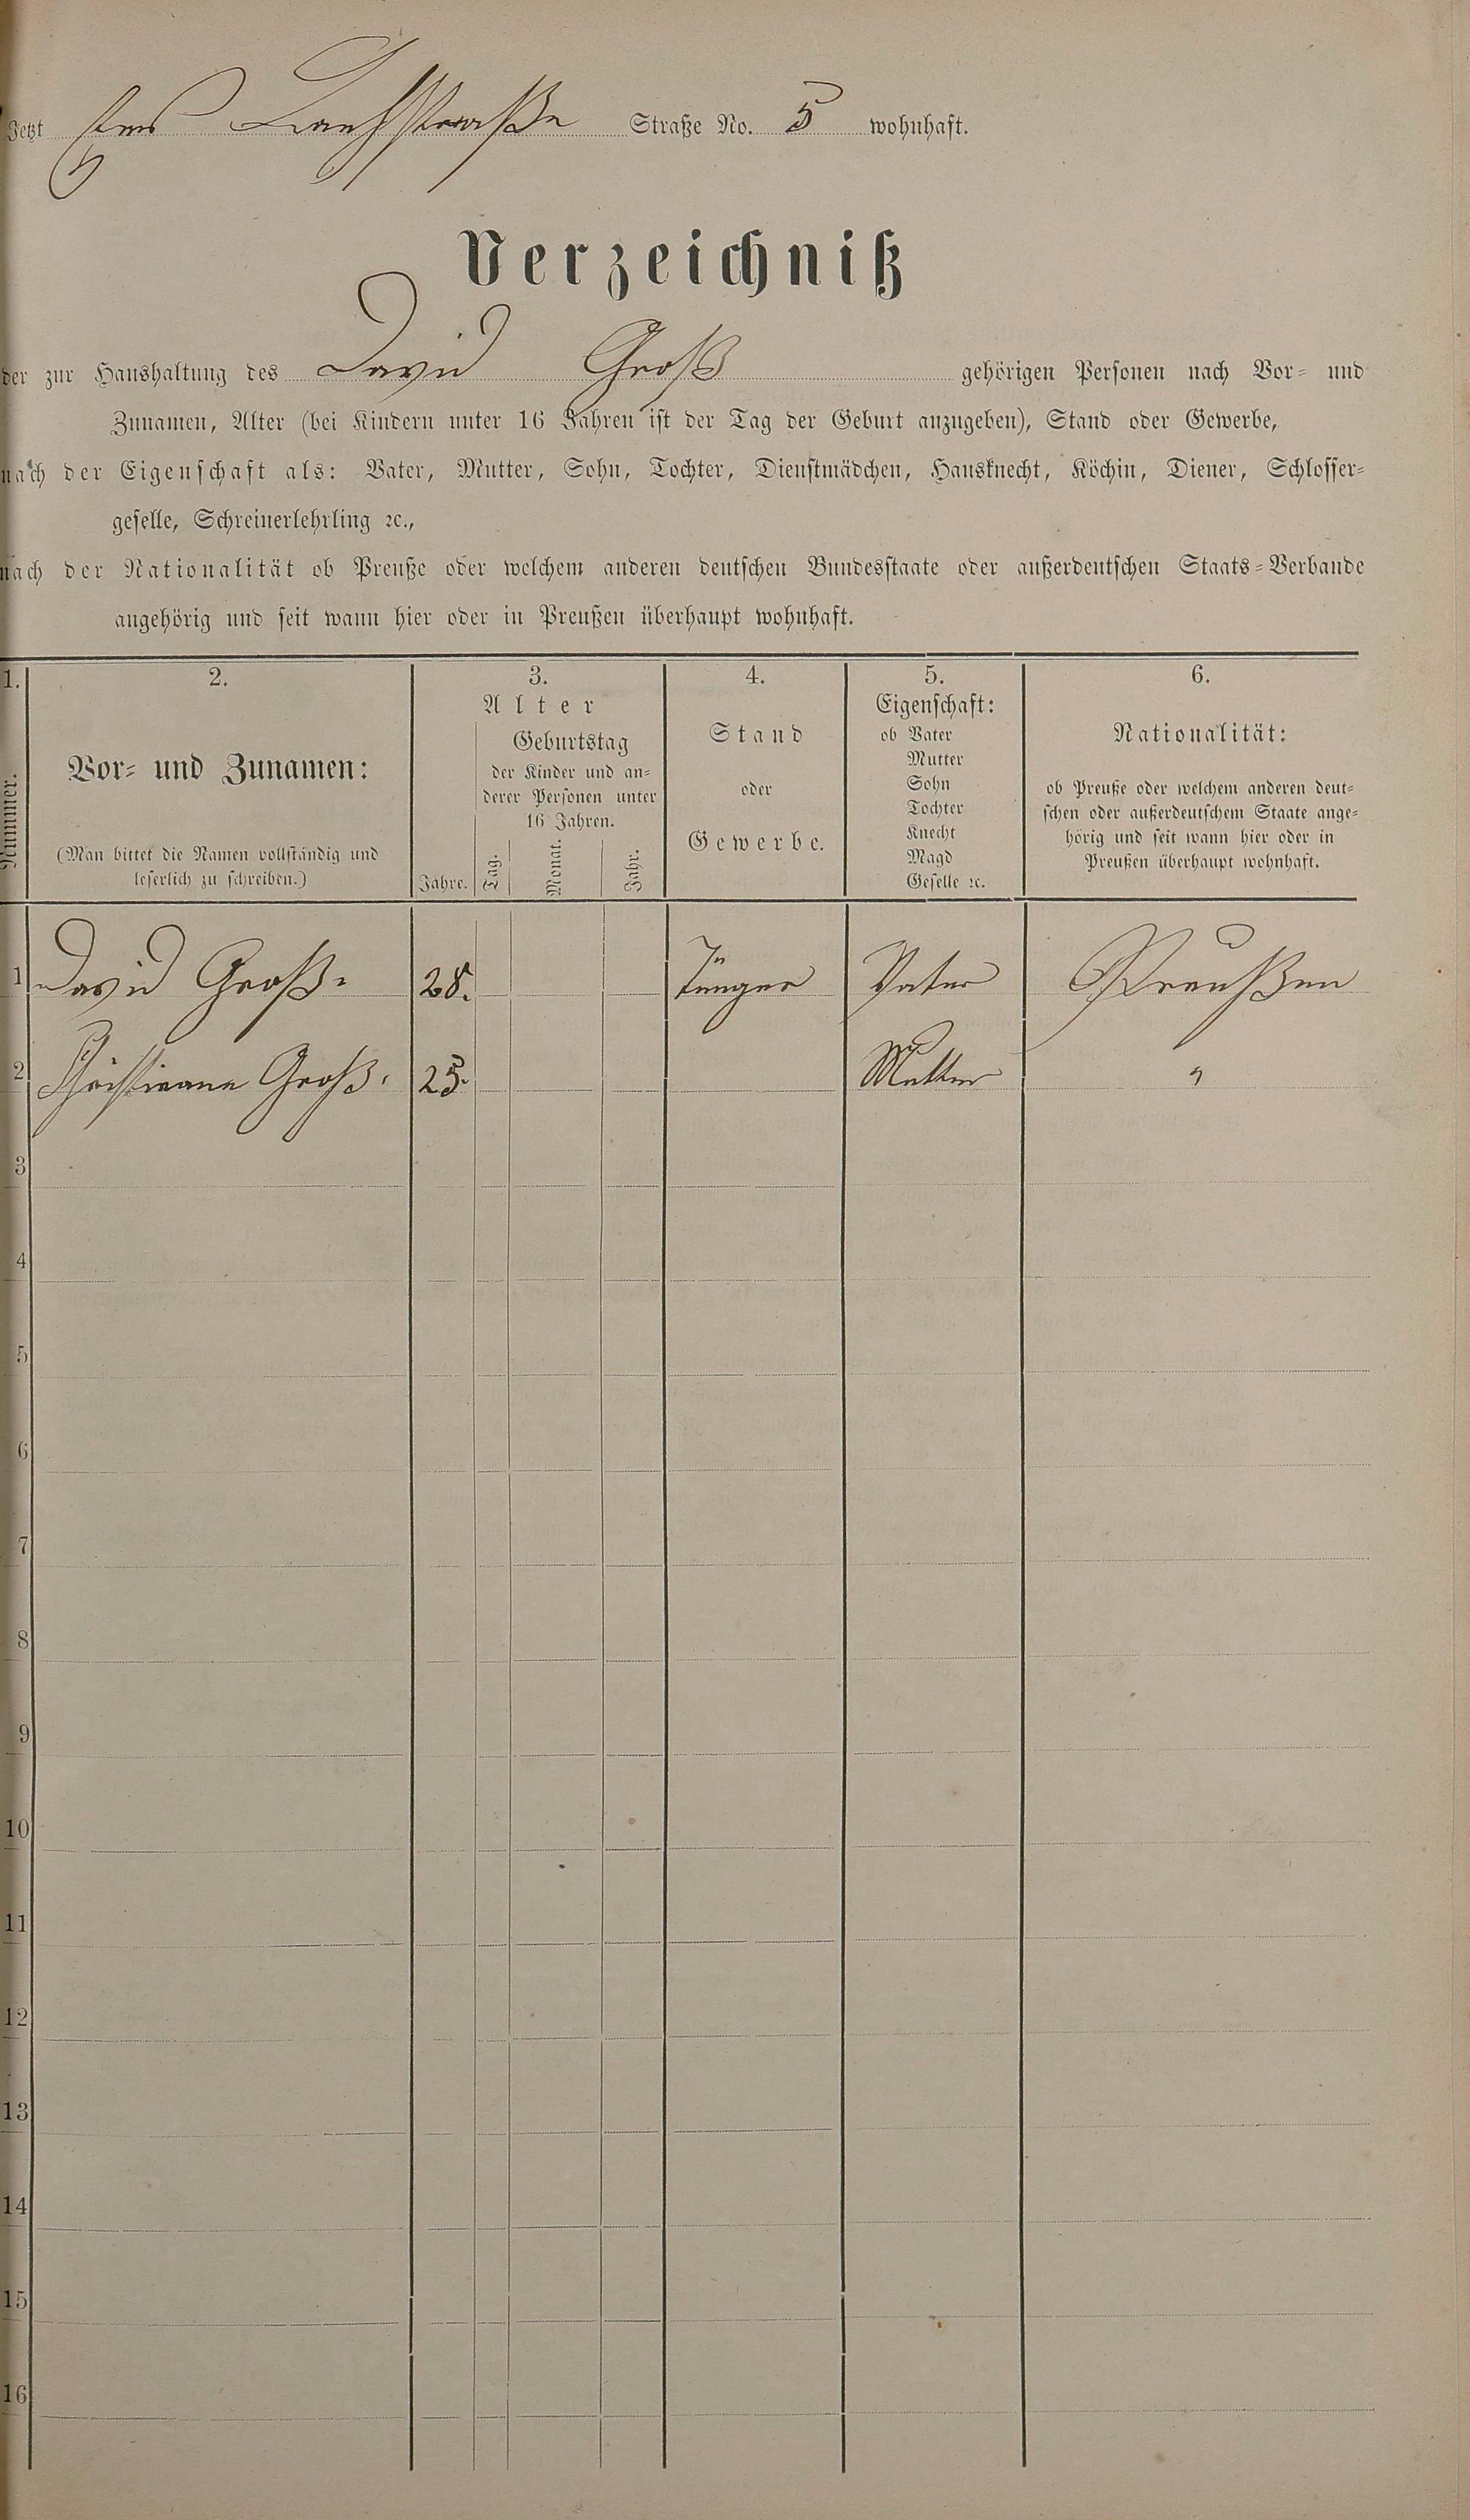 Jetzt Straße No. 5 wohnhaft.
Verzeichniß
der zur Haushaltung des David Groß gehörigen Personen nach Vor- und
Zunamen, Alter (bei Kindern unter 16 Jahren ist der Tag der Geburt anzugeben), Stand oder Gewerbe,
nach der Eigenschaft als: Vater, Mutter, Sohn, Tochter, Dienstmädchen, Hausknecht, Köchin, Diener, Schlosser-
geselle, Schreinerlehrling ꝛc.,
nach der Nationalität ob Preuße oder welchem anderen deutschen Bundesstaate oder außerdeutschen Staats-Verbande
angehörig und seit wann hier oder in Preußen überhaupt wohnhaft.
1.
Nummer.
2.
Vor- und Zunamen:
(Man bittet die Namen vollständig und
leserlich zu schreiben.)
3.
Alter
Jahre.
Geburtstag
der Kinder und an-
derer Personen unter
16 Jahren.
Tag.
Monat.
Jahr.
4.
Stand
oder
Gewerbe.
5.
Eigenschaft:
ob Vater
Mutter
Sohn
Tochter
Knecht
Magd
Geselle ꝛc.
6.
Nationalität:
ob Preuße oder welchem anderen deut-
schen oder außerdeutschem Staate ange-
hörig und seit wann hier oder in
Preußen überhaupt wohnhaft.
1 David Groß. 28. Vater Preußen
2 Christiane Groß. 25. Mutter "
3
4
5
6
7
8
9
10
11
12
13
14
15
16